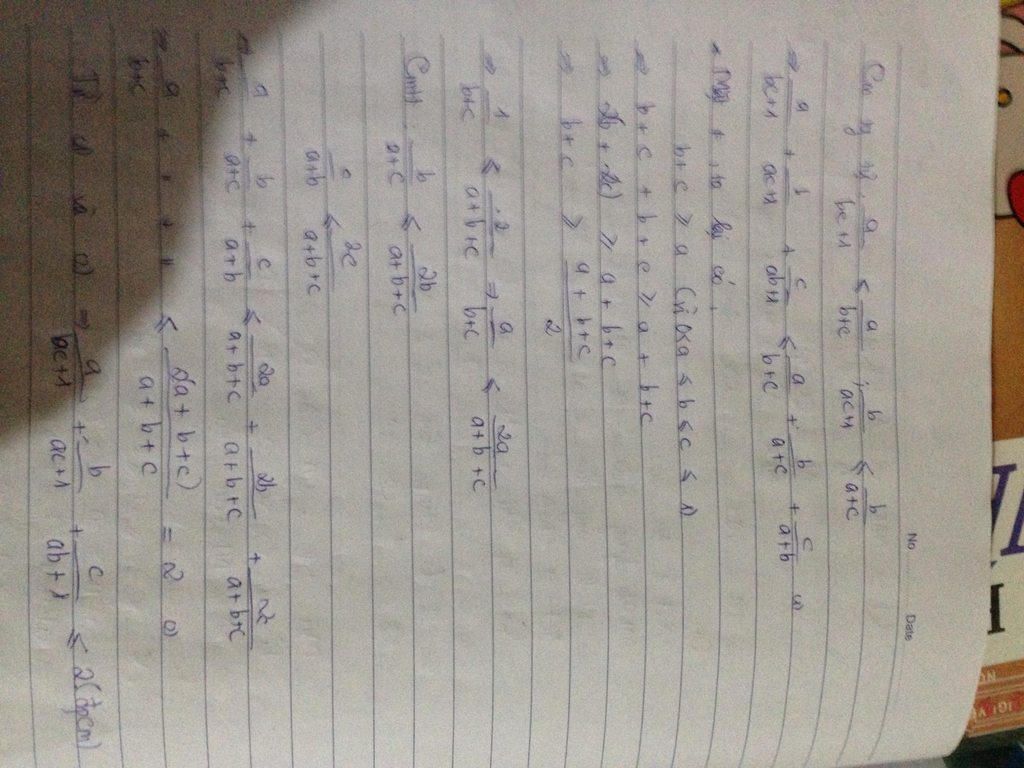 No
Date
a/(bc+1) ≤ a/(b+c) ; b/(ac+1) ≤ b/(a+c)
⇒ a/(bc+1) + b/(ac+1) + c/(ab+1) ≤ a/(b+c) + b/(a+c) + c/(a+b) (1)
có
b+c ≥ a (vì 0≤a ≤ b ≤ c ≤ 1)
⇒ b+c + b+c ≥ a + b+c
⇒ 2b + 2c) ≥ a + b+c
⇒ b+c ≥ (a + b+c)/2
⇒ 1/(b+c) ≤ 2/(a+b+c) ⇒ a/(b+c) ≤ 2a/(a+b+c)
Cmtt b/(a+c) ≤ 2b/(a+b+c)
c/(a+b) ≤ 2c/(a+b+c)
⇒ a/(b+c) + b/(a+c) + c/(a+b) ≤ 2a/(a+b+c) + 2b/(a+b+c) + 2c/(a+b+c)
⇒ a/(b+c) + " + " ≤ 2(a+b+c)/(a+b+c) = 2 (2)
Từ (1) và (2) ⇒ a/(bc+1) + b/(ac+1) + c/(ab+1) ≤ 2 (đpcm)